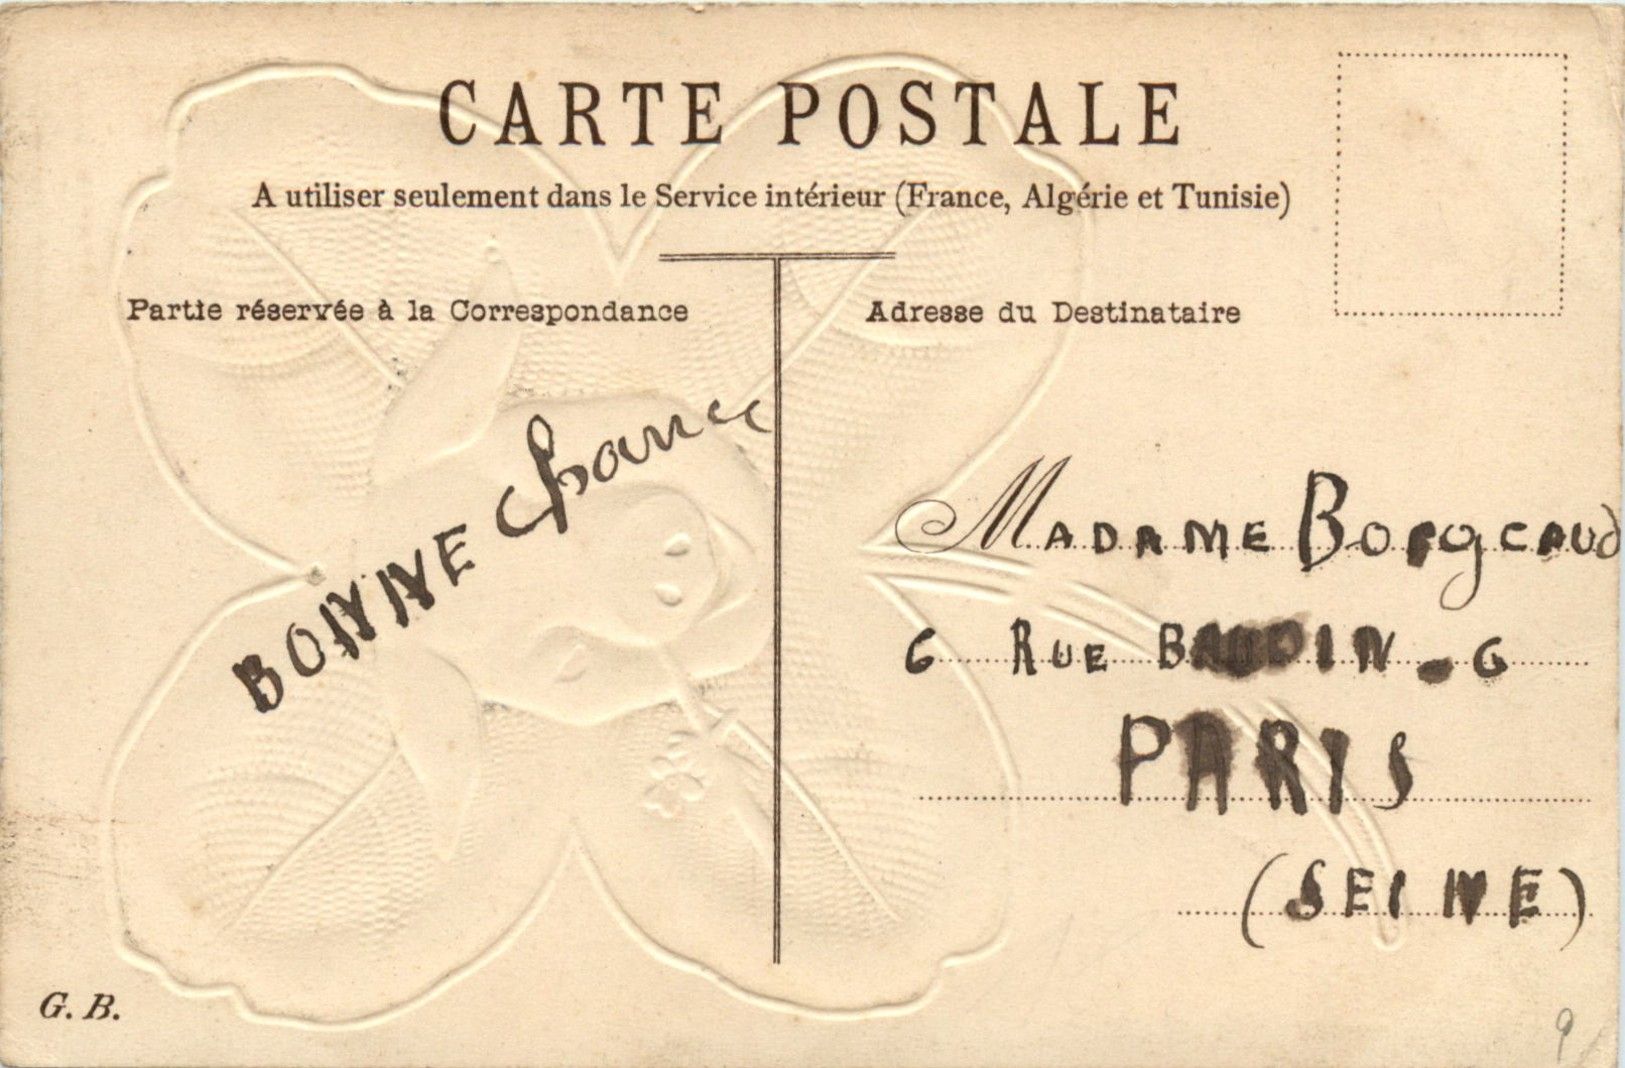 CARTE POSTALE
A utiliser seulement dans le Service intérieur (France, Algérie et Tunisie)
Partie réservée à la Correspondance
Adresse du Destinataire
BONNE Chance
MADAME
6 RUE BAUDIN - 6
PARIS
(SEINE)
G. B.
9